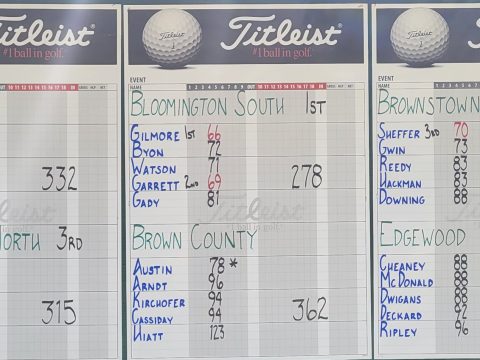 Titleist
#1 ball in golf.
10 11 12 13 14 15 16 17 18 IN GROSS HCP NET
332
NORTH 3RD
315
Titleist
#1 ball in golf.
EVENT
NAME 1 2 3 4 5 6 7 8 9 OUT 10 11 12 13 14 15 16 17 18 IN GROSS HCP NET
BLOOMINGTON SOUTH 1ST
GILMORE 1ST 66
BYON 72
WATSON 71
GARRETT 2ND 69 278
GADY 81
BROWN COUNTY
AUSTIN 78 *
ARNDT 96
KIRCHOFER 94
CASSIDAY 94 362
HIATT 123
Titleist
#1 ball in golf.
EVENT
NAME
BROWNSTOWN
SHEFFER 3RD 70
GWIN 73
REEDY 83
HACKMAN 83
DOWNING 88
EDGEWOOD
CHEANEY 88
MCDONALD 88
DWIGANS 88
DECKARD 92
RIPLEY 96